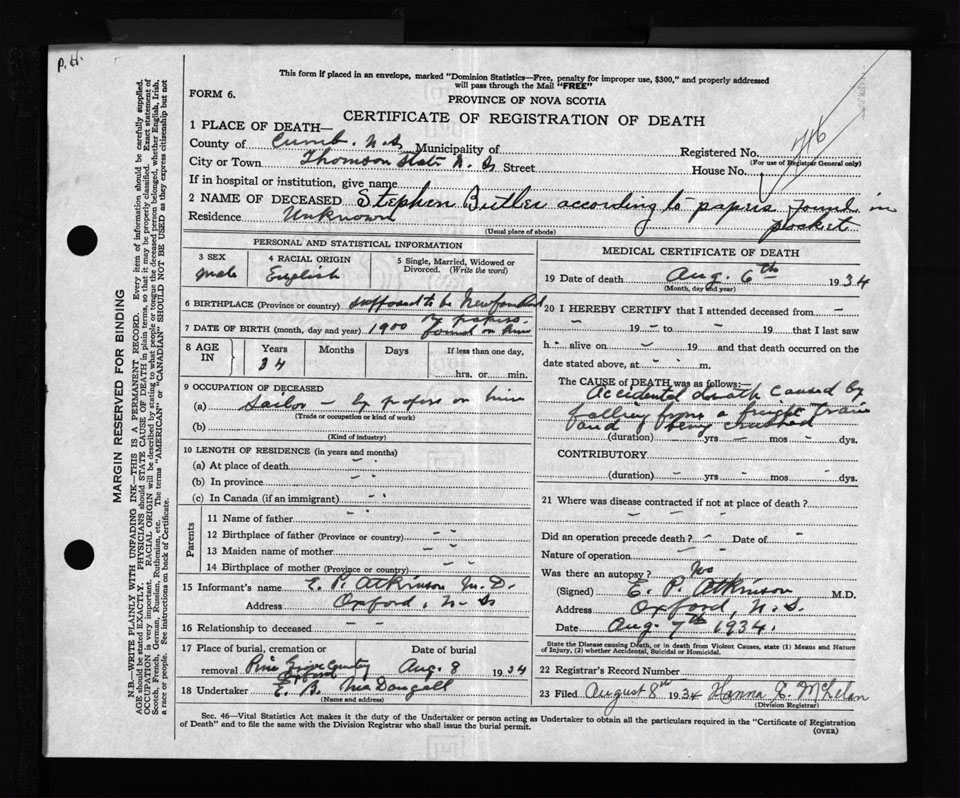 P. H.
This form if placed in an envelope, marked "Dominion Statistics—Free, penalty for improper use, $300," and properly addressed
will pass through the Mail "FREE"
FORM 6.
PROVINCE OF NOVA SCOTIA
CERTIFICATE OF REGISTRATION OF DEATH
716
1 PLACE OF DEATH—
County of Cumb. N.S. Municipality of
Registered No.
(For use of Registrar General only)
City or Town Thomson State N.S. Street
House No.
If in hospital or institution, give name
2 NAME OF DECEASED Stephen Butler according to papers found in
pocket
Residence Unknown
(Usual place of abode)
PERSONAL AND STATISTICAL INFORMATION
3 SEX
male
4 RACIAL ORIGIN
English
5 Single, Married, Widowed or
Divorced. (Write the word)
6 BIRTHPLACE (Province or country) supposed to be Newfoundland
by papers
found on him
7 DATE OF BIRTH (month, day and year) 1900
8 AGE
IN
Years Months Days If less than one day,
34
hrs. or min.
9 OCCUPATION OF DECEASED
(a) Sailor - by papers on him
(Trade or occupation or kind of work)
(b)
(Kind of industry)
10 LENGTH OF RESIDENCE (in years and months)
(a) At place of death - -
(b) In province - -
(c) In Canada (if an immigrant) - -
Parents
11 Name of father - -
12 Birthplace of father (Province or country) - -
13 Maiden name of mother - -
14 Birthplace of mother (Province or country) - -
15 Informant's name E. P. Atkinson M.D.
Address Oxford, N.S
16 Relationship to deceased - -
17 Place of burial, cremation or
removal Pine Grove Cemetery
Oxford
Date of burial
Aug. 8 1934
18 Undertaker E. B. MacDougall
(Name and address)
MEDICAL CERTIFICATE OF DEATH
19 Date of death Aug. 6th 1934
(Month, day and year)
20 I HEREBY CERTIFY that I attended deceased from -
- 19 - to - 19 that I last saw
h - alive on - 19 and that death occurred on the
date stated above, at - - m.
The CAUSE of DEATH was as follows:—
Accidental death caused by
falling from a freight train
and being crushed
(duration) yrs - mos - dys.
CONTRIBUTORY
(duration) - yrs - mos - dys.
21 Where was disease contracted if not at place of death?
- - -
Did an operation precede death? - Date of -
Nature of operation - -
Was there an autopsy? No
(Signed) E. P. Atkinson M.D.
Address Oxford, N.S.
Date Aug. 7th 1934.
State the Disease causing Death, or in death from Violent Causes, state (1) Means and Nature
of Injury, (2) whether Accidental, Suicidal or Homicidal.
22 Registrar's Record Number
23 Filed August 8th 1934 Hanna E. McLelan
(Division Registrar)
Sec. 46—Vital Statistics Act makes it the duty of the Undertaker or person acting as Undertaker to obtain all the particulars required in the "Certificate of Registration
of Death" and to file the same with the Division Registrar who shall issue the burial permit.
(OVER)
MARGIN RESERVED FOR BINDING
N.B.—WRITE PLAINLY WITH UNFADING INK—THIS IS A PERMANENT RECORD. Every item of information should be carefully supplied.
AGE should be stated EXACTLY. PHYSICIANS should STATE CAUSE OF DEATH in plain terms, so that it may be properly classified. Exact statement of
OCCUPATION is very important. RACIAL ORIGIN will be described by stating to what people or tongue the deceased person belonged, whether English, Irish,
Scotch, French, German, Russian, Ruthenian, etc. The terms "AMERICAN" or "CANADIAN" SHOULD NOT BE USED as they express citizenship but not
a race or people. See instructions on back of Certificate.